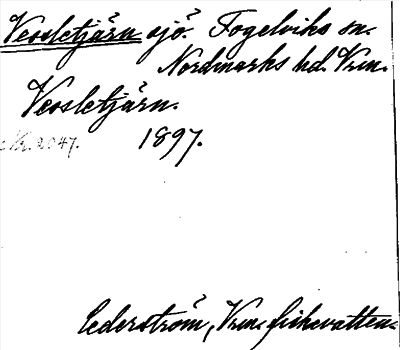 Versletjärn sjö. Fogelviks sn.
Nordmarks hd. Vrm.
Versletjärn.
1897.
Cederström, Vrm. fiskevatten.